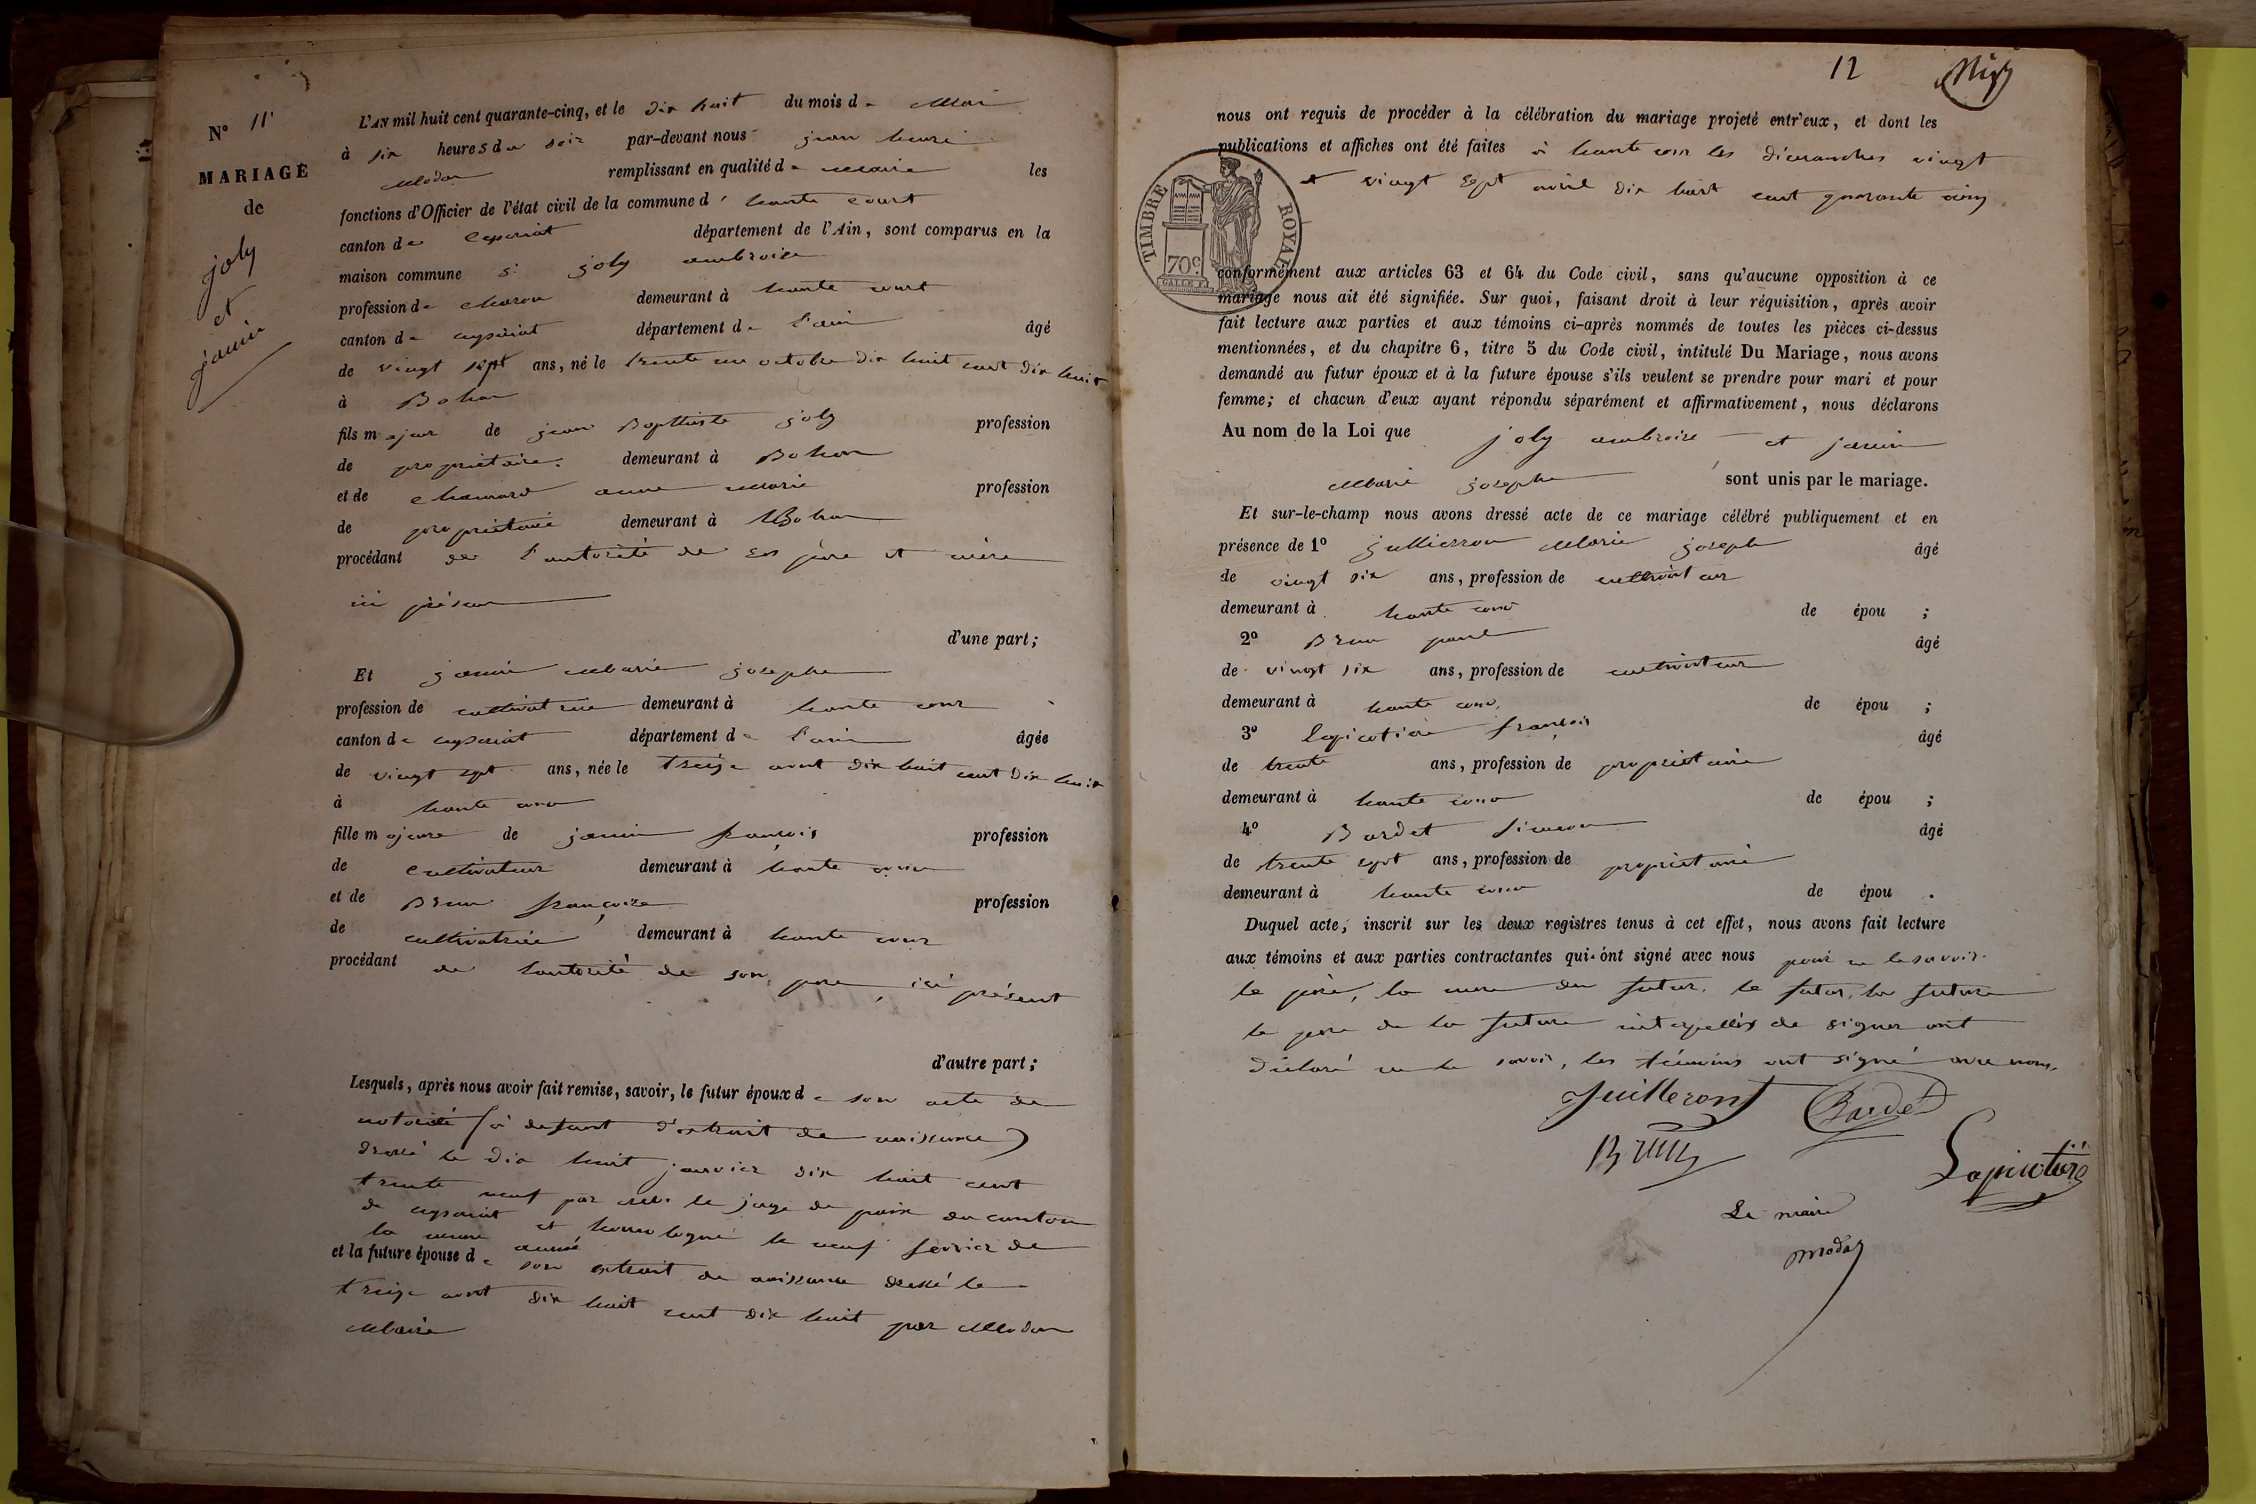 N° 11
MARIAGE
de
joly
et
janin
L'AN mil huit cent quarante-cinq, et le dix huit du mois de Mai
à six heures du soir par-devant nous jean henri
Modas remplissant en qualité de Maire les
fonctions d'Officier de l'état civil de la commune d' haute court
canton de Ceyseriat département de l'Ain, sont comparus en la
maison commune Sr joly ambroise
profession de Charon demeurant à haute court
canton de ceyseriat département de l'ain âgé
de vingt sept ans, né le trente un octobre dix huit cent dix huit
à Bohan
fils majeur de jean Baptiste joly profession
de propriétaire demeurant à Bohan
et de anne Marie profession
de propriétaire demeurant à Bohan
procédant de l'autorité de ses père et mère
ici présen
d'une part;
Et janin Marie josephe
profession de cultivatrice demeurant à haute cour
canton de ceyseriat département de l'ain âgée
de vingt sept ans, née le treize aout dix huit cent dix huit
à haute cour
fille majeure de janin françois profession
de cultivateur demeurant à haute cour
et de Brun françoise profession
de cultivatrice demeurant à haute cour
procédant de l'autorité de son père, ici présent
d'autre part;
Lesquels, après nous avoir fait remise, savoir, le futur époux de son acte de
notorieté (à defaut d'extrait de naissance)
dressé le dix huit janvier dix huit cent
trente neuf par le juge de paix du canton
de ceyseriat et homologué le neuf fevrier de
la meme année
et la future épouse de son extrait de naissance dressé le
treize aout dix huit cent dix huit par Modas
Maire
12
nous ont requis de procéder à la célébration du mariage projeté entr'eux, et dont les
publications et affiches ont été faites à haute cour les dimanches vingt
et vingt sept avril dix huit cent quarante cinq
TIMBRE ROYAL
70c
conformément aux articles 63 et 64 du Code civil, sans qu'aucune opposition à ce
mariage nous ait été signifiée. Sur quoi, faisant droit à leur réquisition, après avoir
fait lecture aux parties et aux témoins ci-après nommés de toutes les pièces ci-dessus
mentionnées, et du chapitre 6, titre 5 du Code civil, intitulé Du Mariage, nous avons
demandé au futur époux et à la future épouse s'ils veulent se prendre pour mari et pour
femme; et chacun d'eux ayant répondu séparément et affirmativement, nous déclarons
Au nom de la Loi que joly ambroise et janin
Marie josephe sont unis par le mariage.
Et sur-le-champ nous avons dressé acte de ce mariage célébré publiquement et en
présence de 1° Marie joseph âgé
de vingt six ans, profession de cultivateur
demeurant à haute cour de épou ;
2° Brun paul âgé
de vingt six ans, profession de cultivateur
demeurant à haute cour de épou ;
3° lapicotière françois âgé
de trente ans, profession de propriétaire
demeurant à haute cour de épou ;
4° Bardet Simeon âgé
de trente sept ans, profession de propriétaire
demeurant à haute cour de épou .
Duquel acte, inscrit sur les deux registres tenus à cet effet, nous avons fait lecture
aux témoins et aux parties contractantes qui ont signé avec nous pour ne le savoir.
le père, la mere du futur, le futur, la future
le pere de la future interpellés de signer ont
déclaré ne le savoir, les témoins ont signé avec nous.
Juilleront Bardet
Brun
Lapicotière
Le maire
Modas